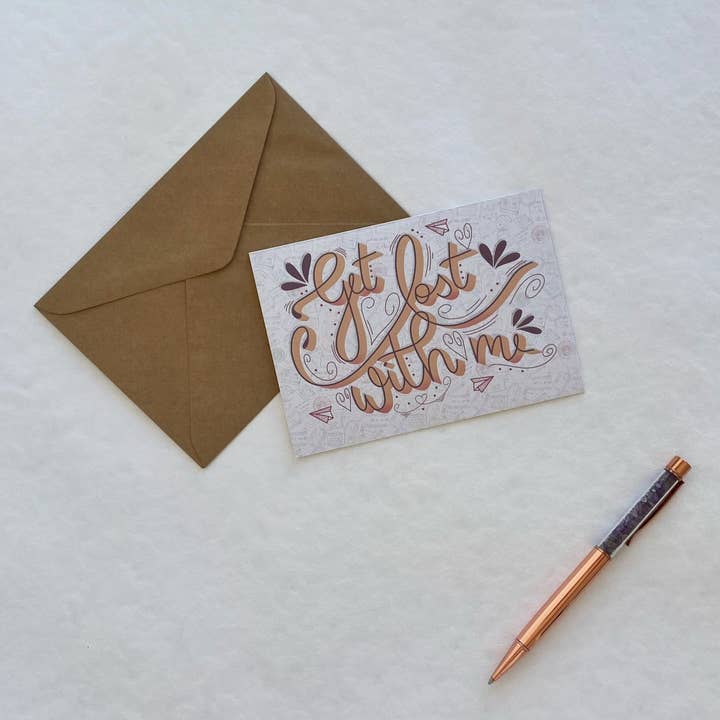 Get lost
with me